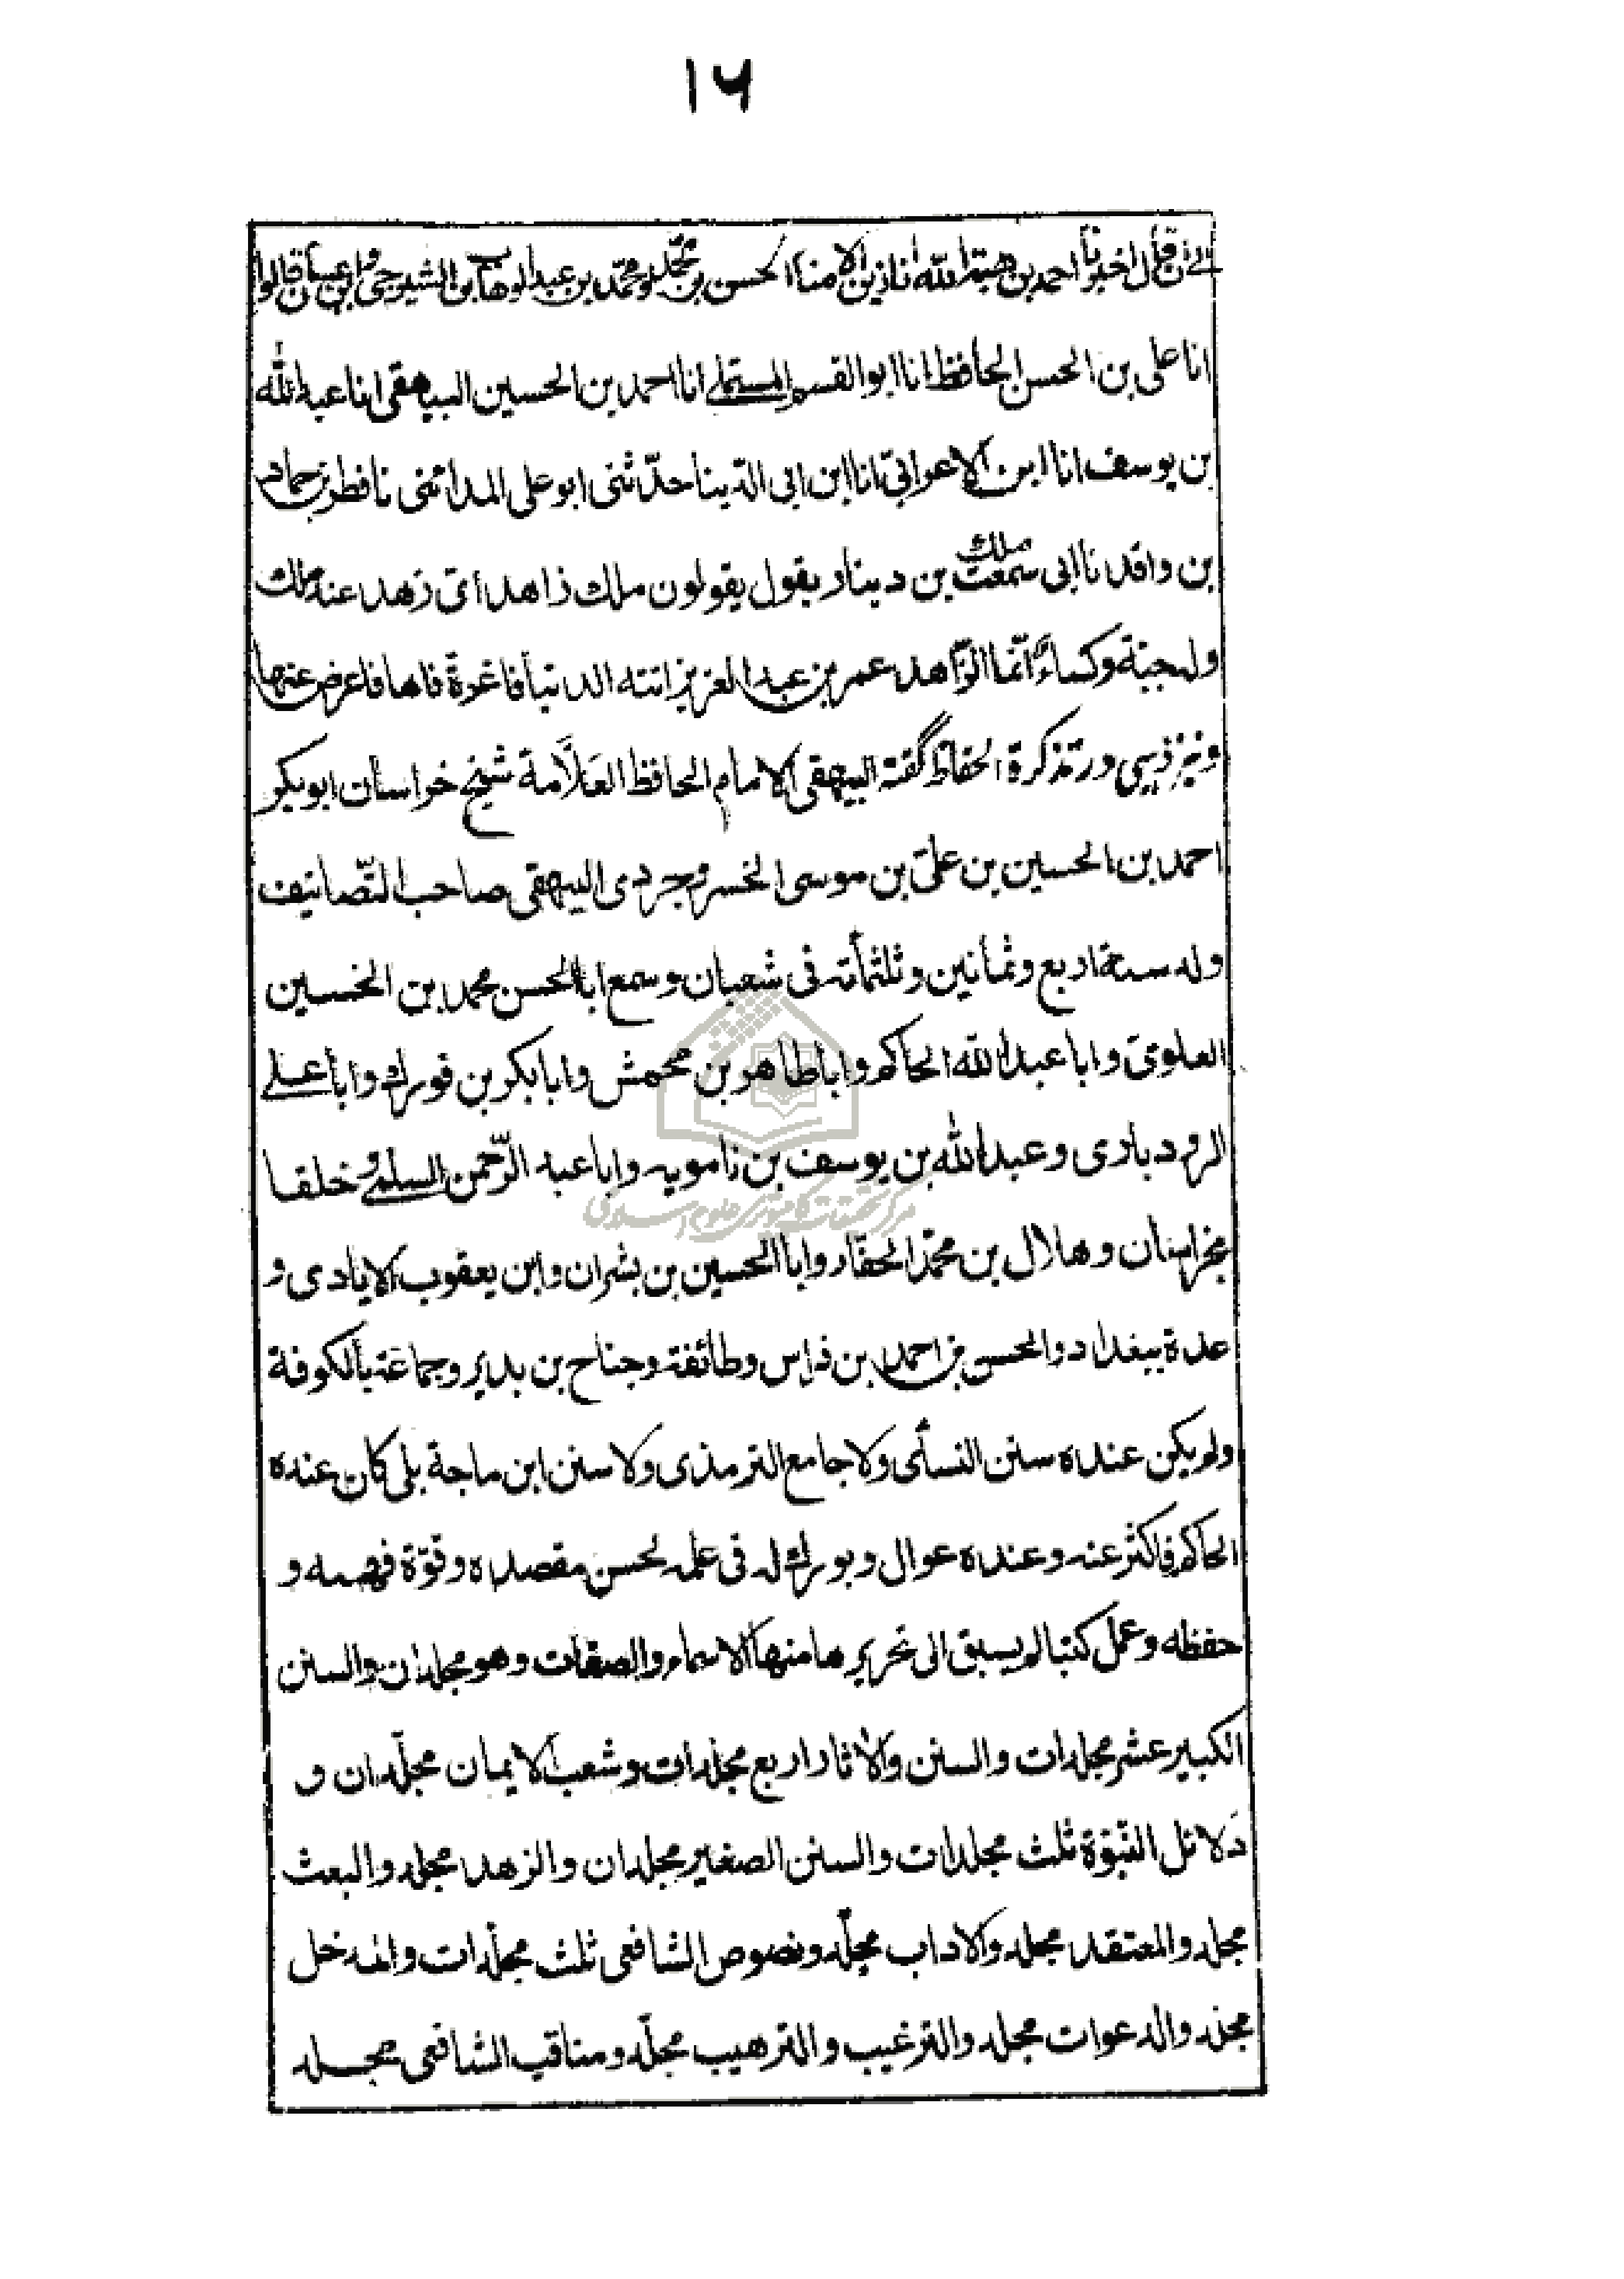 ١٦
الى ان قال اخبرنا احمد بن هبة الله انا زين الامناء الحسن بن محمد و محمد بن عبد الوهاب بن الشيرجى و ابن غسان قالوا
انا على بن الحسن الحافظ انا ابو القسم المستملى انا احمد بن الحسين البيهقى انا عبد الله
بن يوسف انا ابن الاعرابى انا ابن ابى الدينا حدّثنى ابو على المدائنى نا فطر بن حماد
بن واقد نا ابى سمعت ملك بن دينار يقول يقولون ملك زاهد اىّ زهد عند ملك
وله جبة وكساء انّما الزّاهد عمر بن عبد العزيز اتته الدنيا فاغرة فاها فاعرض عنها
ونيز ذهبى در تذكرة الحفاظ گفته البيهقى الامام الحافظ العلّامة شيخ خراسان ابو بكر
احمد بن الحسين بن علىّ بن موسى الخسروجردى البيهقى صاحب التّصانيف
ولد سنة اربع وثمانين وثلثمأته فى شعبان وسمع ابا الحسن محمد بن الحسين
العلوىّ وابا عبد الله الحاكم وابا طاهر بن محمش وابا بكر بن فورك وابا على
الرودبارى وعبد الله بن يوسف بن نامويه وابا عبد الرّحمن السلمى و خلقا
بخراسان وهلال بن محمّد الحفّار وابا الحسين بن بشران وابن يعقوب الايادى و
عدة ببغداد والحسن بن احمد بن فراس وطائفة وجناح بن بدير وجماعة بالكوفة
ولم يكن عنده سنن النسأى ولا جامع الترمذى ولا سنن ابن ماجة بلى كان عنده
الحاكم فاكثر عنه وعنده عوال وبورك له فى علمه لحسن مقصده وقوّة فهمه و
حفظه وعمل كتبا لم يسبق الى تحريرها منها الاسماء والصفات وهو مجلدان والسنن
الكبير عشر مجلدات والسنن والاثار اربع مجلدات وشعب الايمان مجلّدان و
دلائل النّبوّة ثلث مجلدات والسنن الصغير مجلدان والزهد مجلد والبعث
مجلد والمعتقد مجلد والاداب مجلّد ونصوص الشافعى ثلث مجلّدات والمدخل
مجلد والدعوات مجلد والترغيب والترهيب مجلّد ومناقب الشافعى مجلد
مركز تحقيقات كامپيوترى علوم اسلامى